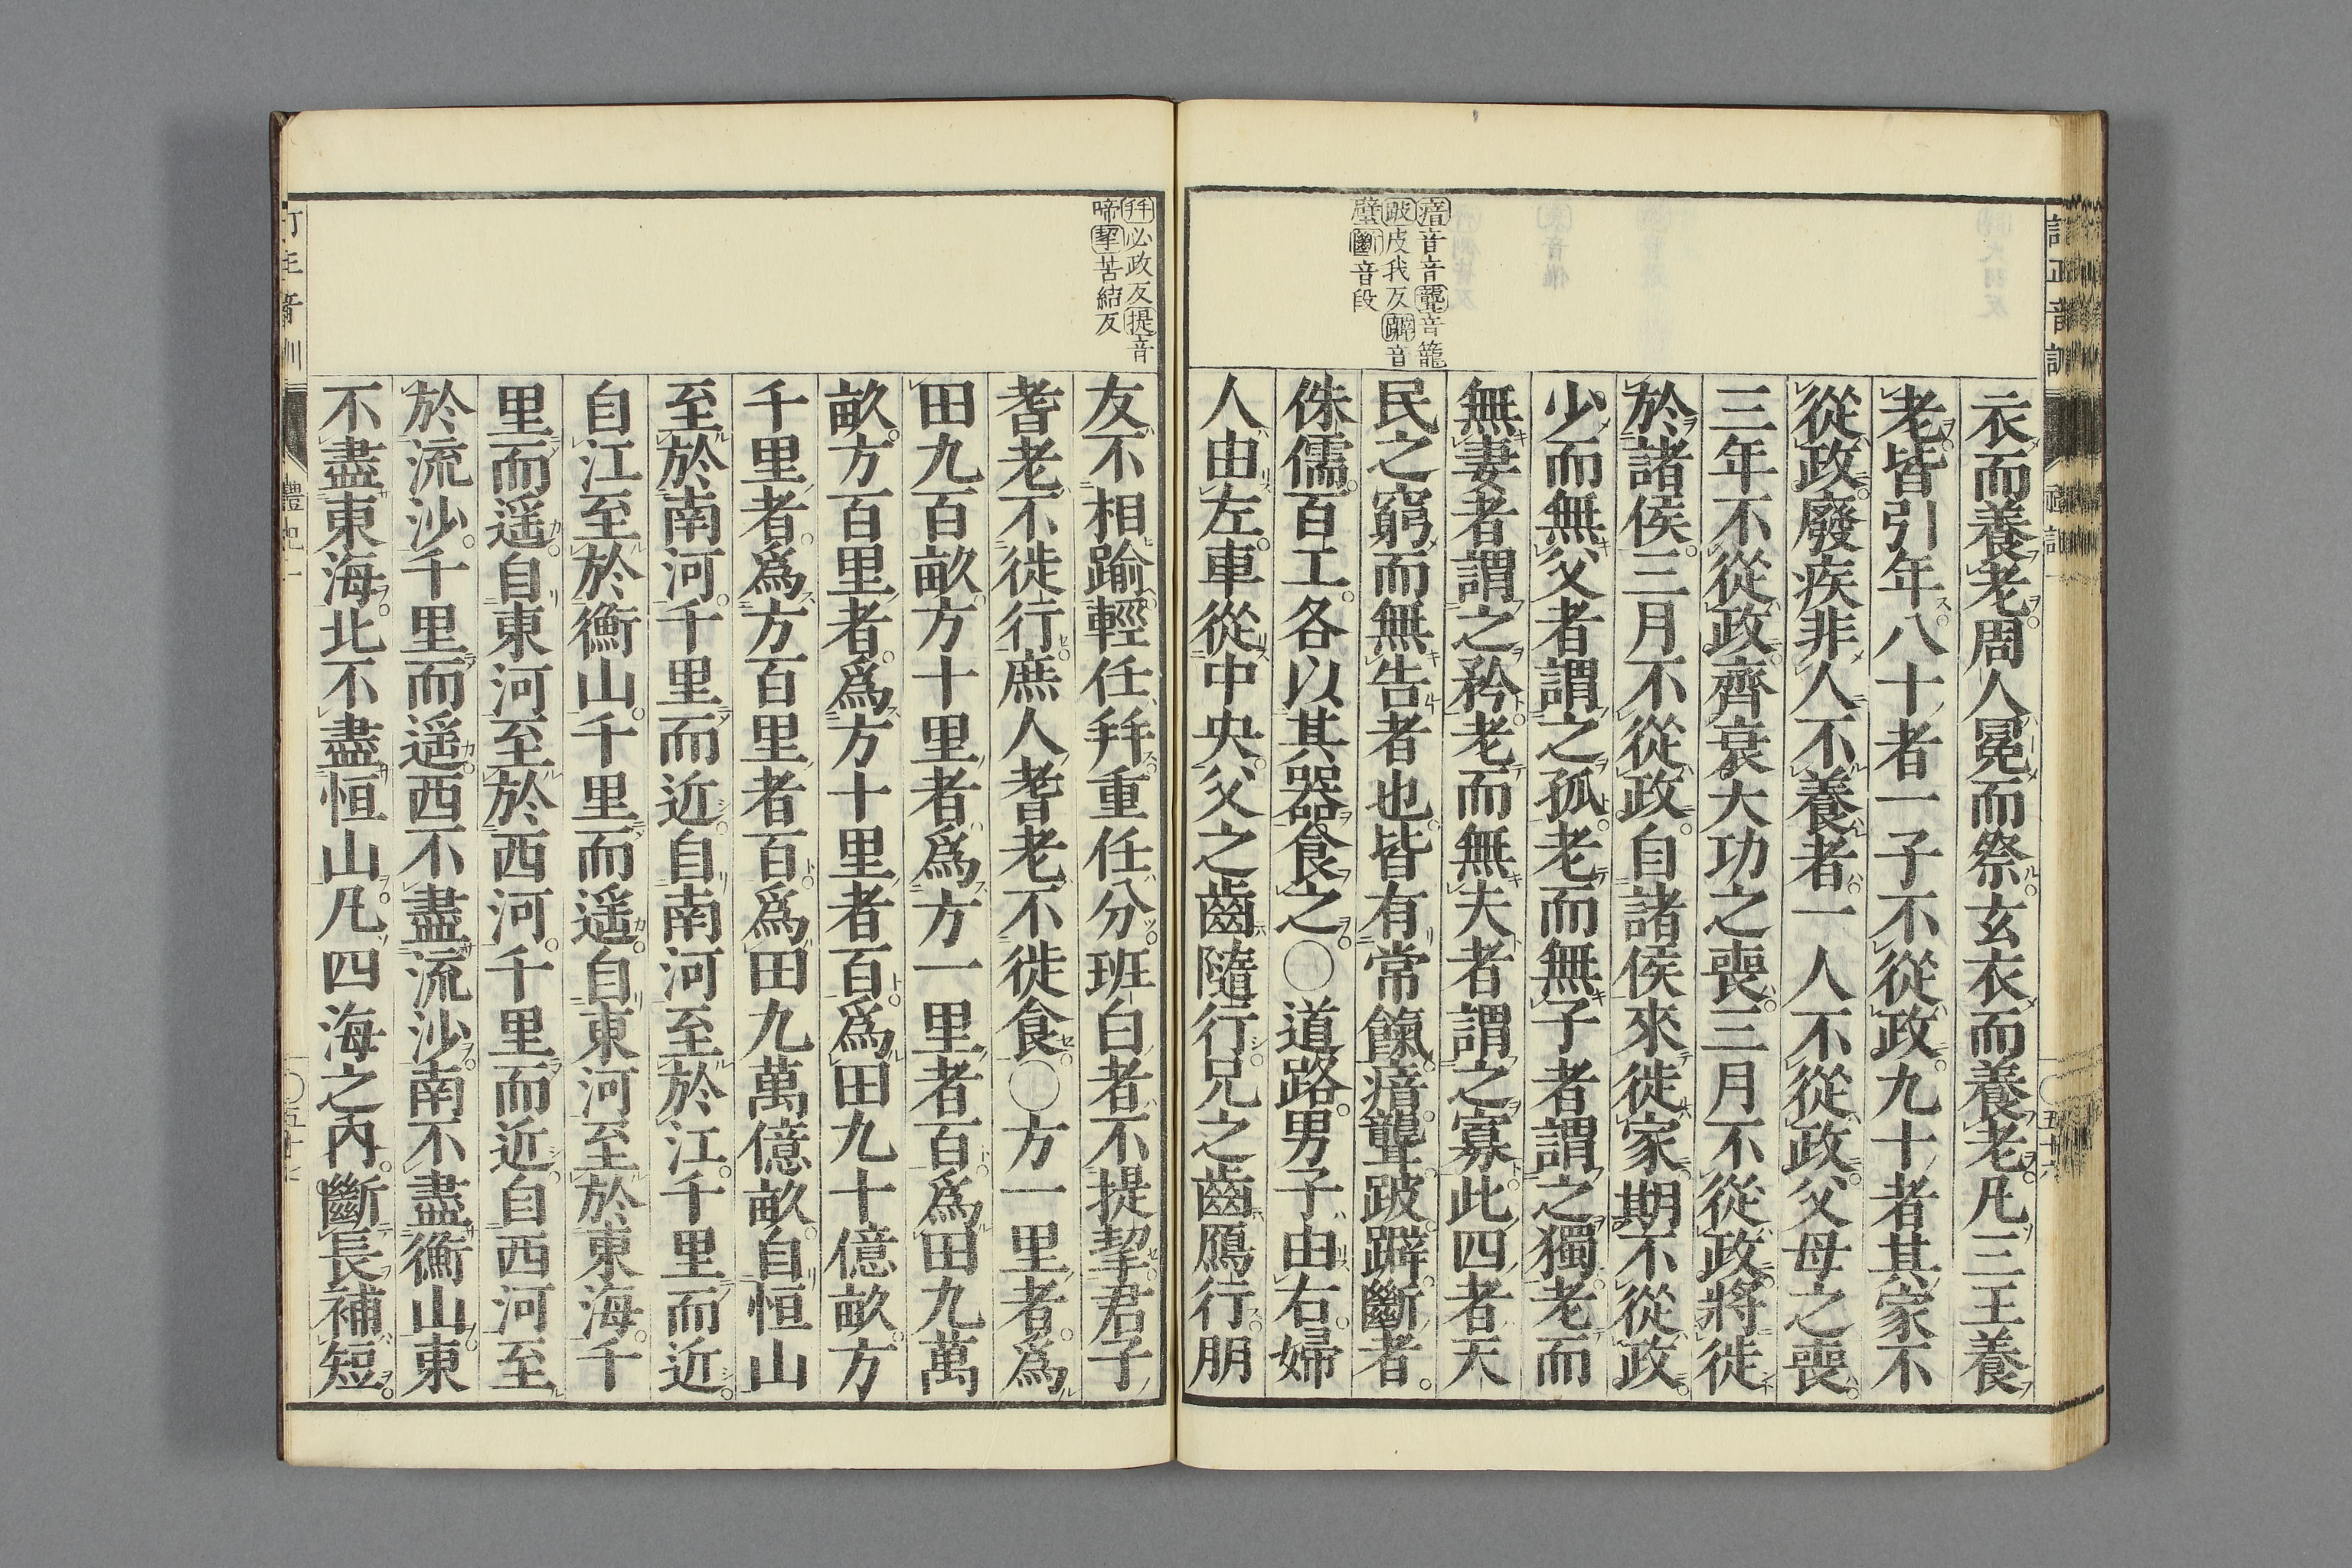 瘖音音聾音籠
跛皮我反躃音
璧斷音段
衣而養老周人冕而祭玄衣而養老凡三王養
老皆引年八十者一子不從政九十者其家不
從政廢疾非人不養者一人不從政父母之喪
三年不從政齊衰大功之喪三月不從政將徙
於諸侯三月不從政自諸侯來徙家期不從政
少而無父者謂之孤老而無子者謂之獨老而
無妻者謂之矜老而無夫者謂之寡此四者天
民之窮而無告者也皆有常餼瘖聾跛躃斷者
侏儒百工各以其器食之〇道路男子由右婦
人由左車從中央父之齒隨行兄之齒鴈行朋
拜必政反提音
啼挈苦結反
友不相踰輕任幷重任分班白者不提挈君子
耆老不徒行庶人耆老不徒食〇方一里者爲
田九百畝方十里者爲方一里者百爲田九萬
畝方百里者爲方十里者百爲田九十億畝方
千里者爲方百里者百爲田九萬億畝自恒山
至於南河千里而近自南河至於江千里而近
自江至於衡山千里而遥自東河至於東海千
里而遥自東河至於西河千里而近自西河至
於流沙千里而遥西不盡流沙南不盡衡山東
不盡東海北不盡恒山凡四海之内斷長補短